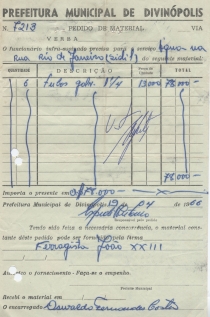 PREFEITURA MUNICIPAL DE DIVINÓPOLIS
N. 7213 PEDIDO DE MATERIAL VIA
VERBA
O funcionário infra-assinado precisa para o serviço água na
Rua Rio de Janeiro do seguinte material:
QUANTIDADE DESCRIÇÃO TOTAL
6 tubos galv. 1 1/4 13000 78.000
78.000
Importa o presente em 78.000
Prefeitura Municipal de Divinópolis 19 04
Tendo sido feita a necessária concorrência, o material cons-
tante dêste pedido pode ser fornecido pela firma
Ferragista João XXIII
Autorizo o fornecimento - Faça-se o empenho.
Prefeito Municipal
Recebi o material em
O encarregado Oswaldo Fernandes